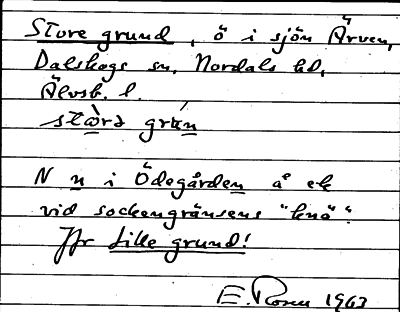 Store grund, ö i sjön Ärven,
Dalskogs sn, Nordals hd,
Älvsb. l.
stòrə grún
N n i Ödegården å ek
vid sockengränsens "knä".
Jfr Lille grund!
E. Rosen 1963